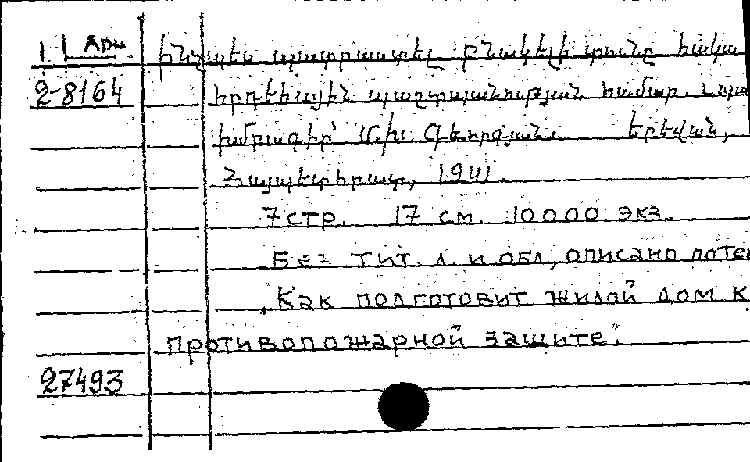 Արև
2-8164
Ինչպես պատրաստել բնակելի տունը հակա
հրդեհային պաշտպանության համար.
խմբագիր՝ Մխ. Գևորգյան. Երեվան,
Հայպետհրատ, 1941.
7 стр. 17 см. 10000 экз.
Без тит. л. и обл, описано по
„Как подготовит жилой дом к
противопожарной защите".
27493